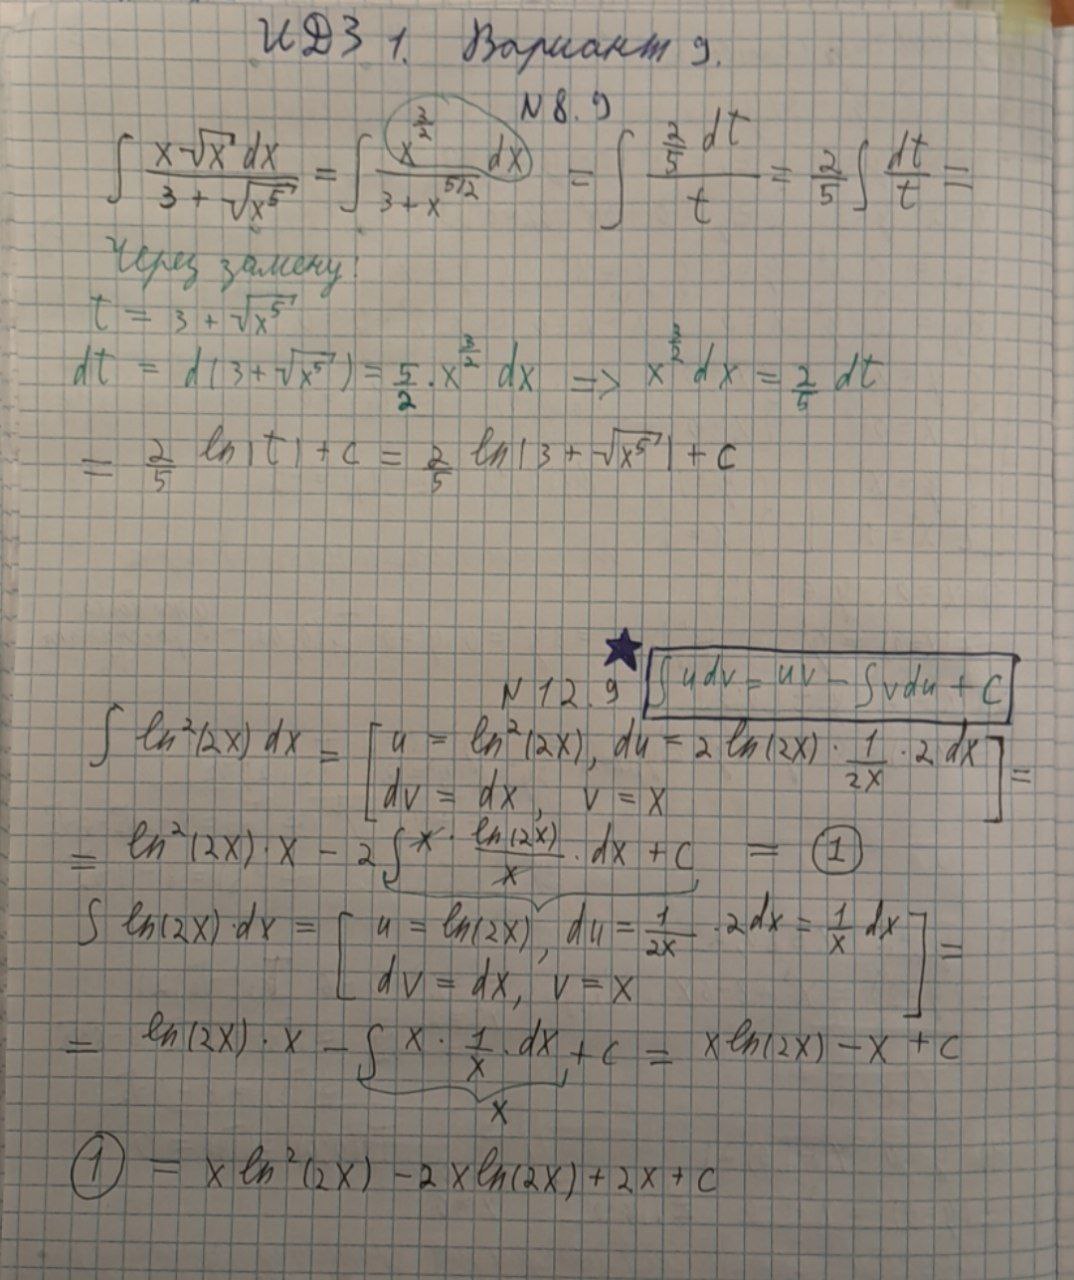 ИДЗ 1. Вариант 9.
N 8.9
∫ x√x dx / (3 + √x⁵) = ∫ x^(3/2) dx / (3 + x^(5/2)) = ∫ (2/5 dt) / t = 2/5 ∫ dt/t =
Через замену:
t = 3 + √x⁵
dt = d(3 + √x⁵) = 5/2 · x^(3/2) dx => x^(3/2) dx = 2/5 dt
= 2/5 ln|t| + c = 2/5 ln|3 + √x⁵| + c
N 12.9 ∫udv = uv − ∫vdu + C
∫ ln²(2x) dx = [u = ln²(2x), du = 2 ln(2x) · 1/2x · 2 dx
dv = dx, v = x] =
= ln²(2x) · x − 2∫x · ln(2x)/x · dx + c = ①
∫ ln(2x) · dx = [u = ln(2x), du = 1/2x · 2dx = 1/x dx
dv = dx, v = x] =
= ln(2x) · x − ∫ x · 1/x · dx + c = x ln(2x) − x + c
x
① = x ln²(2x) − 2x ln(2x) + 2x + c